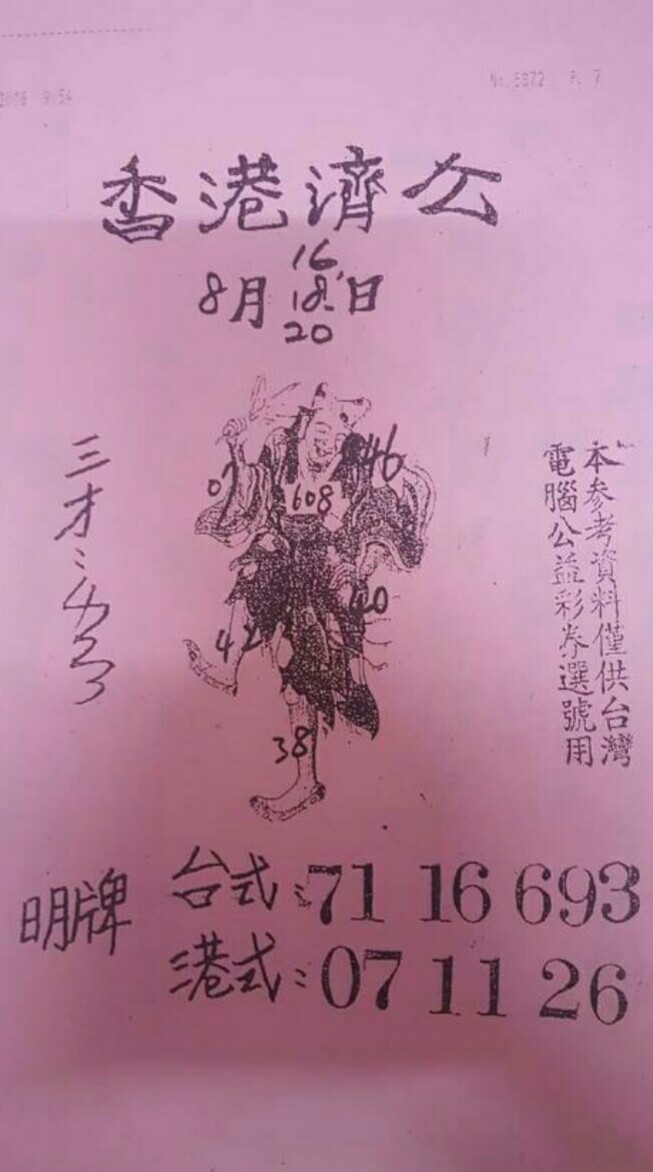 No. 5372 P. 7
9:54
香港濟公
16
8月18日
20
46
608
40
42
38
三才:
本參考資料僅供台灣
電腦公益彩券選號用
明牌
台式:71 16 693
港式:07 11 26